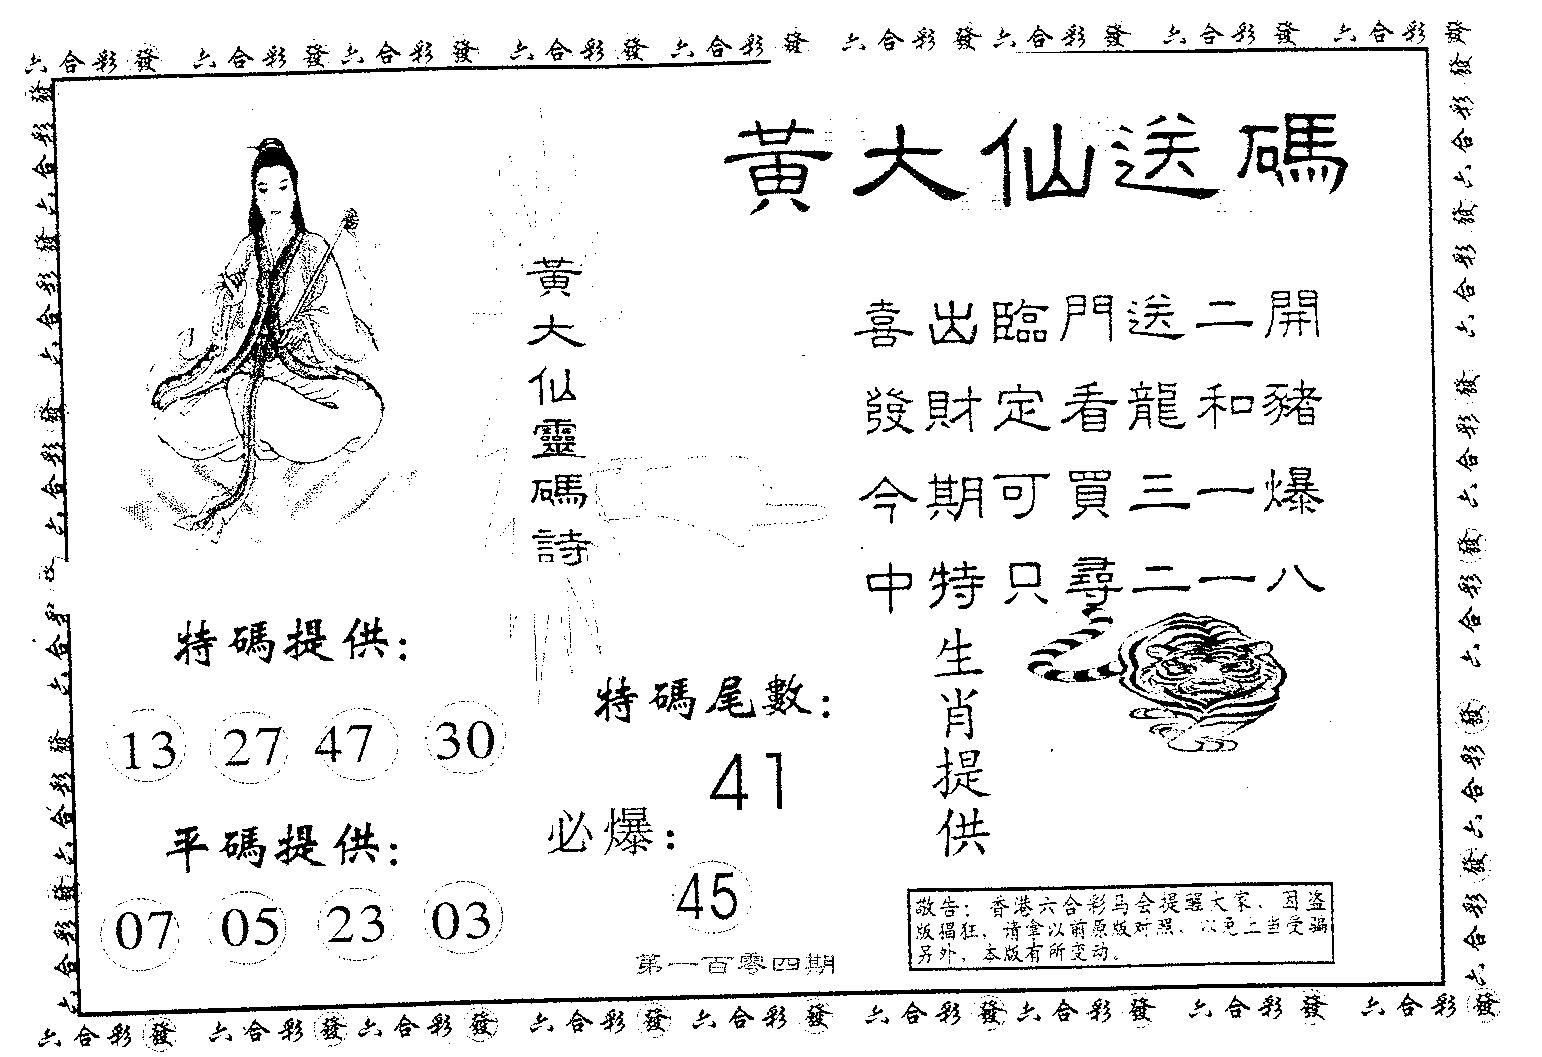 六合彩發 六合彩發六合彩發 六合彩發 六合彩發 六合彩發六合彩發 六合彩發 六合彩發
黃大仙送碼
黃大仙靈碼詩
喜出臨門送二開
發財定看龍和豬
今期可買三一爆
中特只尋二一八
生肖提供
特碼提供：
13 27 47 30
平碼提供：
07 05 23 03
特碼尾數：
41
必爆：
45
第一百零四期
敬告：香港六合彩马会提醒大家，因盗
版猖狂，请拿以前原版对照，以免上当受骗
另外，本版有所变动。
六合彩發 六合彩發六合彩發 六合彩發 六合彩發 六合彩發六合彩發 六合彩發 六合彩發